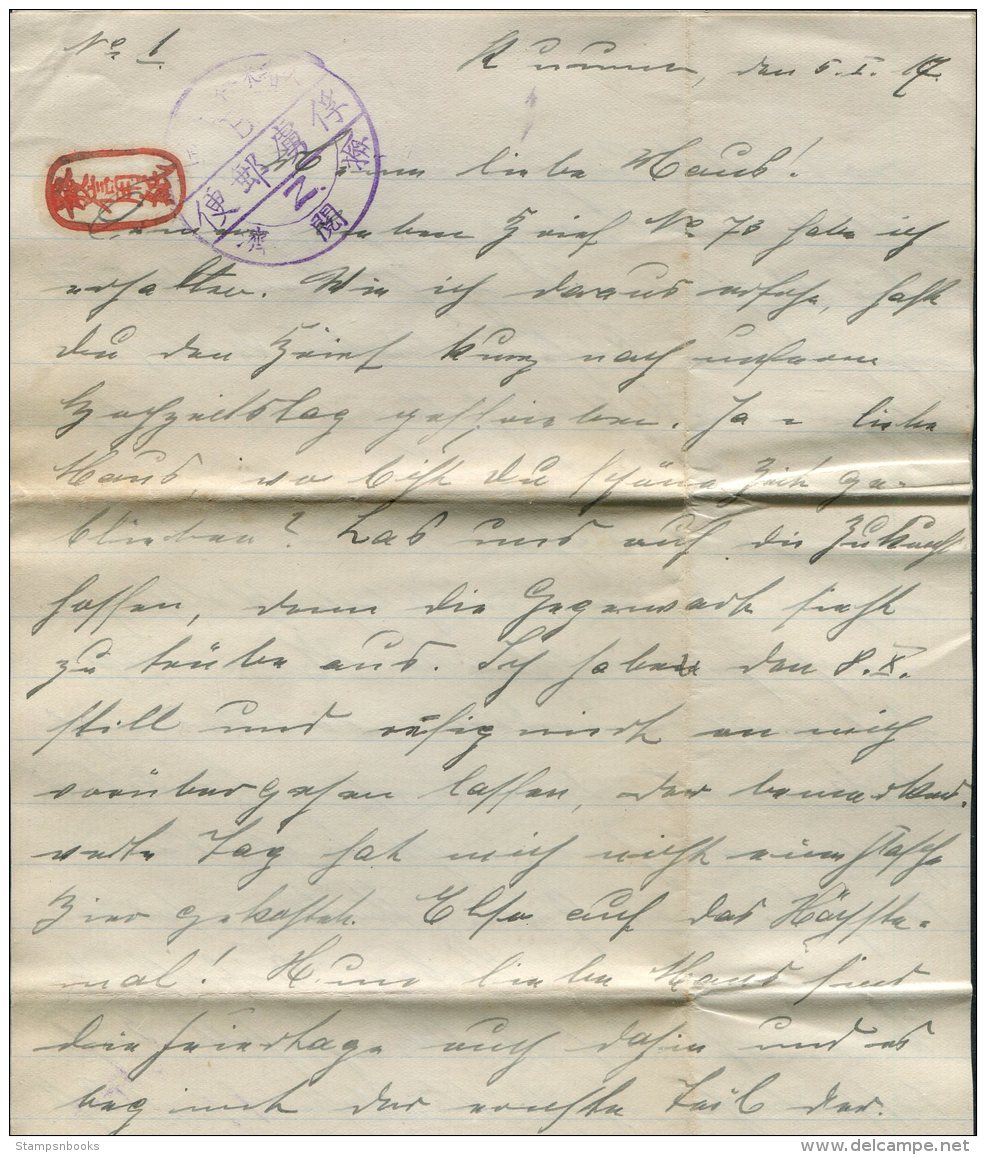 No 1.
Kurume, den 5. I. 17.
俘虜郵便
檢閱濟
Meine liebe Maus!
Deinen lieben Brief No 73 habe ich
erhalten. Wie ich daraus ersehe, hast
Du den Brief kurz nach unserem
Hochzeitstag geschrieben. Ja = liebe
Maus, wo bist Du schöne Zeit ge-
blieben? Las uns auf die Zukunft
hoffen, denn die Gegenwart sieht
zu trübe aus. Ich habe den 8. X.
still und an mich
vorübergehen lassen, der bemerkens-
werte Tag hat mich nicht eine Flasche
Bier gekostet. Also auf das Nächste-
mal! Nun liebe Maus sind
die Feiertage auch dahin und es
beginnt der ernste Teil der.
Stampsnbooks
www.delcampe.net